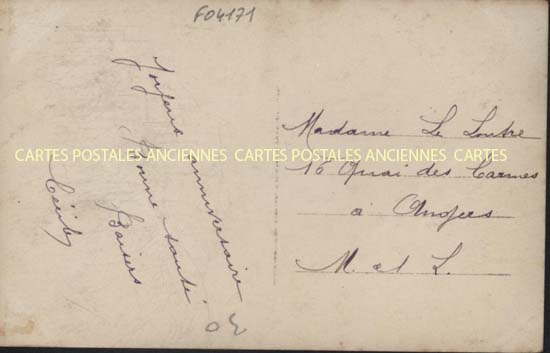 F04171
Joyeux anniversaire
Bonne santé
Baisers
Madame Le Loutre
CARTES POSTALES ANCIENNES CARTES POSTALES ANCIENNES CARTES
16 Quai des Carmes
à Angers
M. et L.